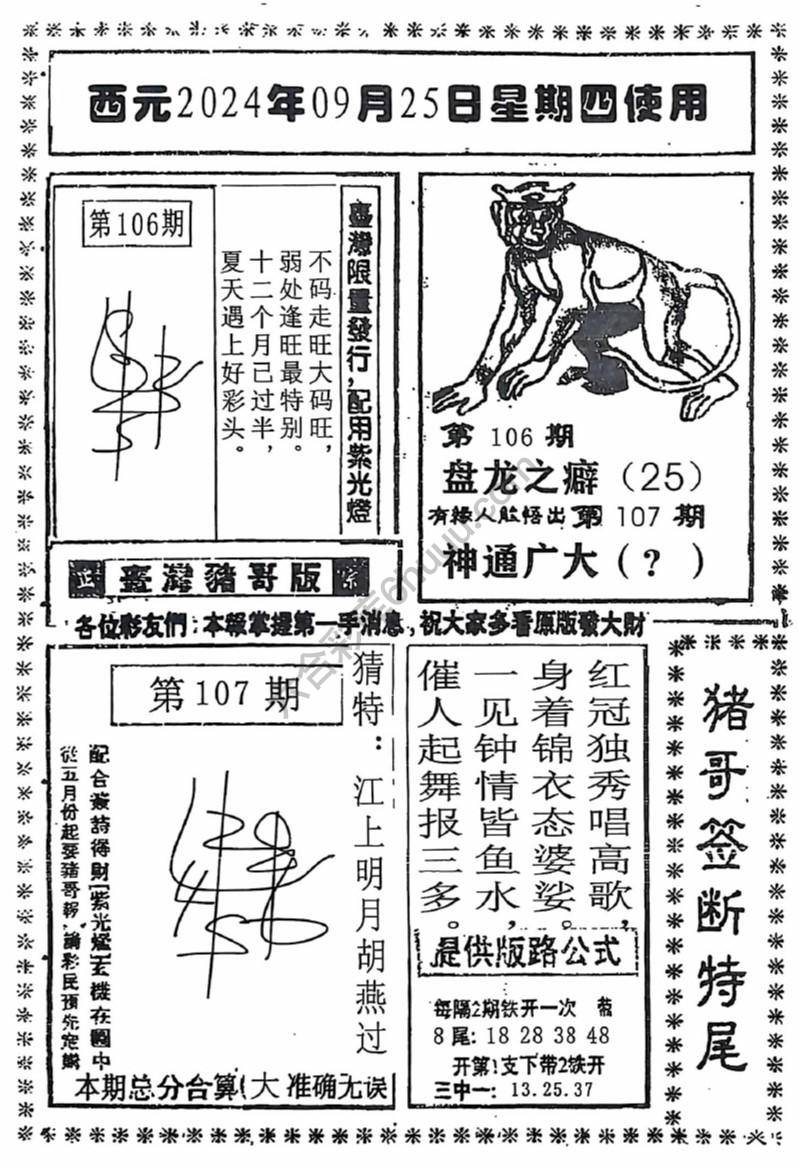 西元2024年09月25日星期四使用
第106期
臺灣限量發行,配用紫光燈
不码走旺大码旺,
弱处逢旺最特别。
十二个月已过半,
夏天遇上好彩头。
第 106 期
盘龙之癖(25)
有缘人能悟出 第 107 期
神通广大(?)
正 臺灣豬哥版 宗
各位彩友們:本報掌握第一手消息,祝大家多看原版發大財
第107期
猜特:江上明月胡燕过
配合簽詩得財[紫光燈]玄機在圖中
從五月份起要豬哥報,請彩民預先定購
本期总分合算(大 准确无误
红冠独秀唱高歌,
身着锦衣态婆娑。
一见钟情皆鱼水,
催人起舞报三多。
提供版路公式
每隔2期铁开一次
8尾: 18 28 38 48
开第1支下带2铁开
三中一: 13.25.37
猪哥签断特尾
六合彩库6huuu.com